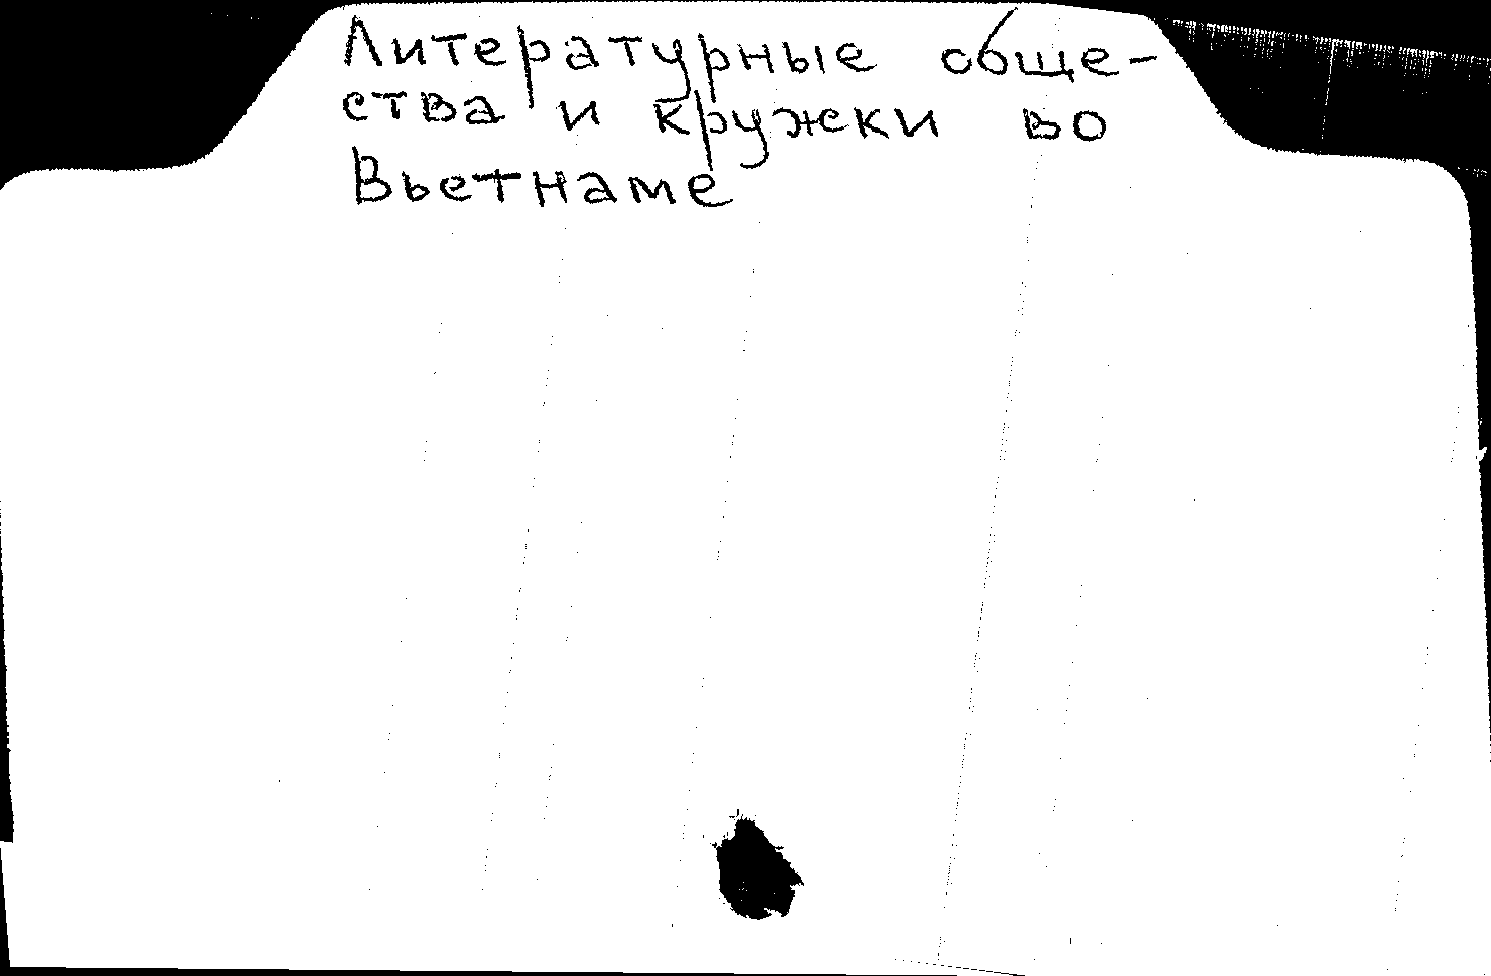 Литературные обще-
ства и кружки во
Вьетнаме